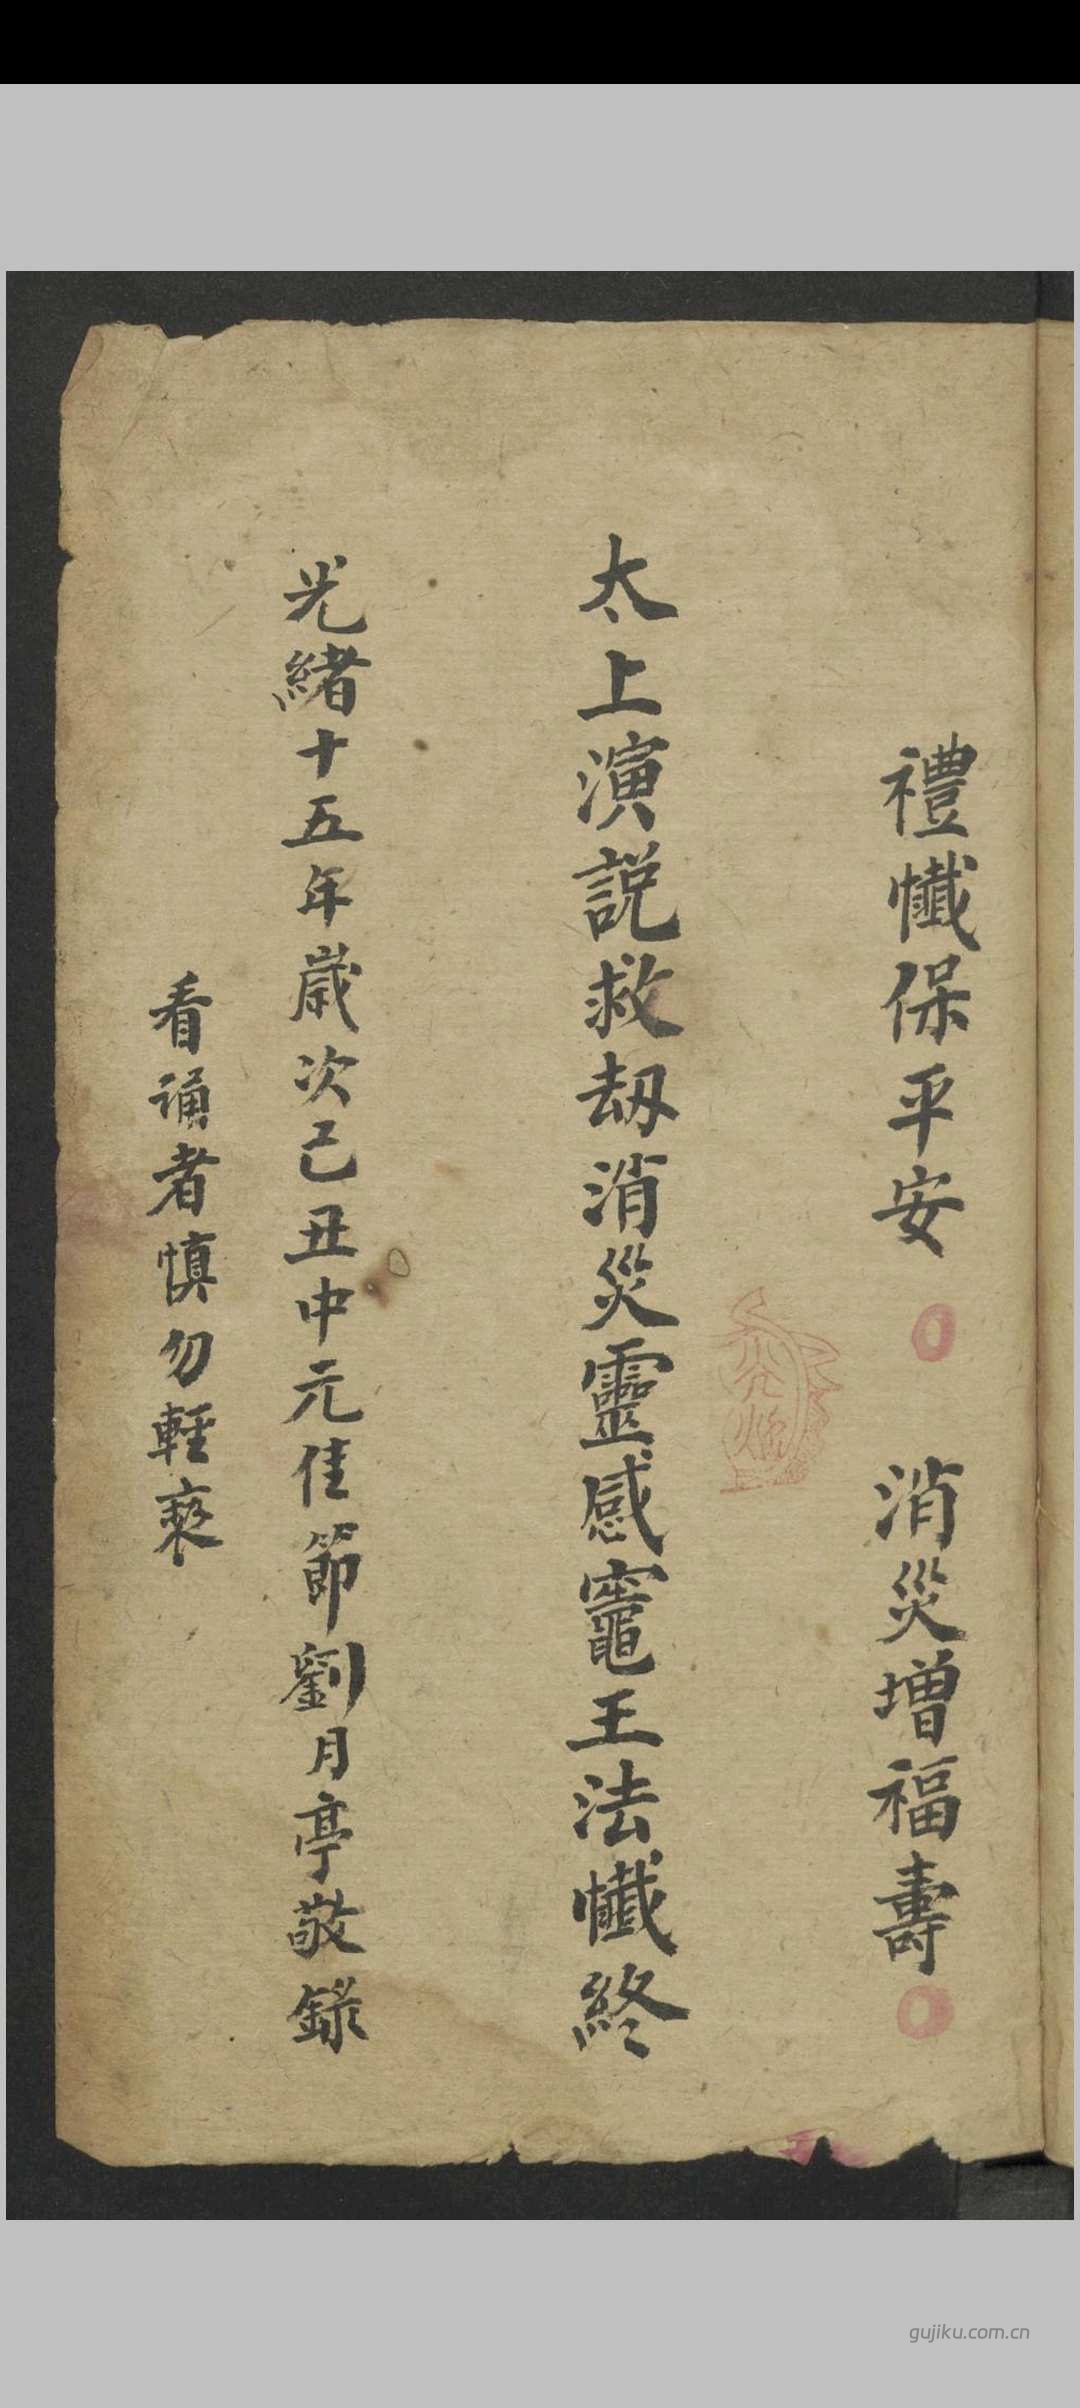 禮懺保平安 消災增福壽
太上演説救刼消災靈感竈王法懺終
光緒十五年歲次己丑中元佳節劉月亭敬錄
看誦者慎勿輕褻
gujiku.com.cn